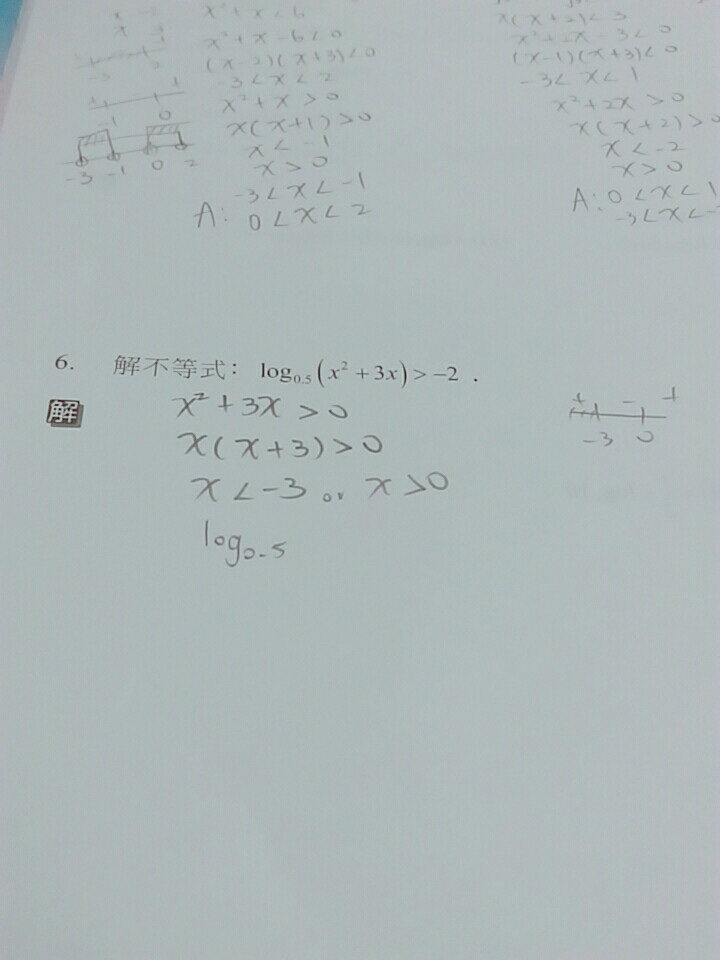 x²+x<6
x²+x-6<0
(x-2)(x+3)<0
-3<x<2
x²+x>0
x(x+1)>0
x<-1
x>0
A: -3<x<-1
0<x<2
- +
-1 0
-3 -1 0 2
x(x+2)<3
x²+2x-3<0
(x-1)(x+3)<0
-3<x<1
x²+2x>0
x(x+2)>0
x<-2
x>0
A: 0<x<1
-3<x<-
6. 解不等式： log₀.₅(x²+3x)>-2 .
解
x²+3x>0
x(x+3)>0
x<-3 or x>0
log₀.₅
+ - +
-3 0